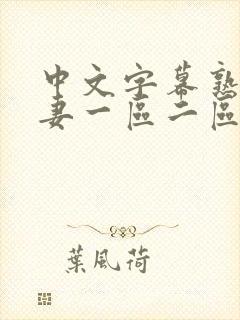 中文字幕熟
妻一區二區
葉風荷